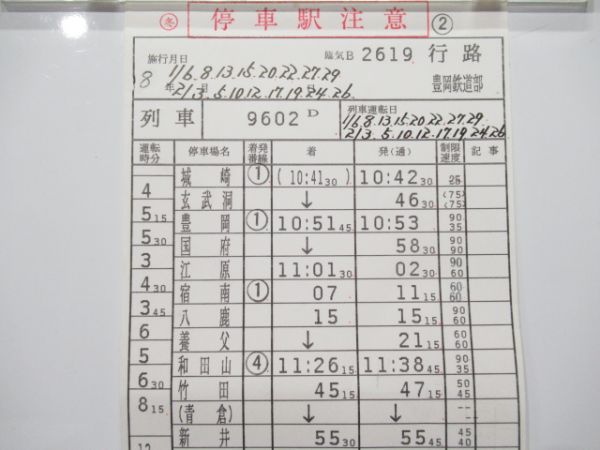 冬 停車駅注意 ②
施行月日 臨気B 2619 行路
8年 1/6.8.13.15.20.22.27.29
2/3.5.10.12.17.19.24.26 豊岡鉄道部
列車 9602D 列車運転日 1/6.8.13.15.20.22.27.29
2/3.5.10.12.17.19.24.26
運転時分 停車場名 着発番線 着 発(通) 制限速度 記事
城崎 ① (10:41 30) 10:42 30 25
4 玄武洞 ↓ 46 30 (75) (75)
5 15 豊岡 ① 10:51 45 10:53 90 35
5 30 国府 ↓ 58 30 90 90
3 江原 11:01 30 02 30 90 60
4 30 宿南 ① 07 11 15 60 60
3 45 八鹿 15 15 15 90 60
6 養父 ↓ 21 15 60 60
5 和田山 ④ 11:26 15 11:38 45 90 35
6 30 竹田 45 15 47 15 50 45
8 15 (青倉) ↓ ↓ -- --
新井 55 30 55 45 45 40
12